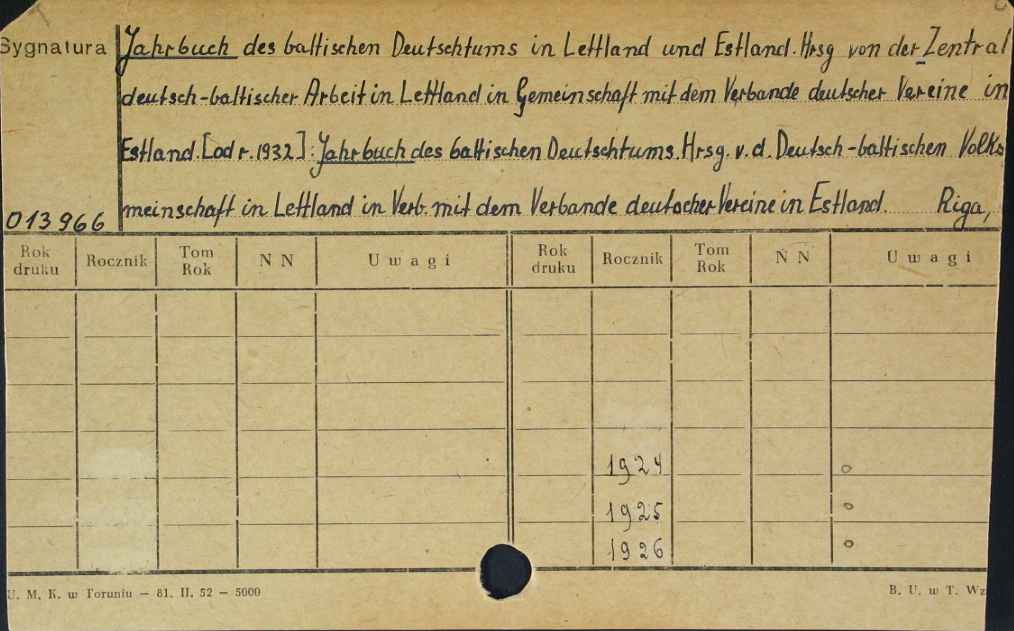 Sygnatura
Jahrbuch des baltischen Deutschtums in Lettland und Estland. Hrsg von der Zentral
deutsch-baltischer Arbeit in Lettland in Gemeinschaft mit dem Verbande deutscher Vereine in
Estland. [od r. 1932]: Jahrbuch des baltischen Deutschtums. Hrsg. v. d. Deutsch-baltischen Volks
meinschaft in Lettland in Verb. mit dem Verbande deutscher Vereine in Estland. Riga,
013966
Rok druku Rocznik Tom Rok N N Uwagi Rok druku Rocznik Tom Rok N N Uwagi
1924 o
1925 o
1926 o
U. M. K. w Toruniu — 81. II. 52 — 5000 B. U. w T. Wz